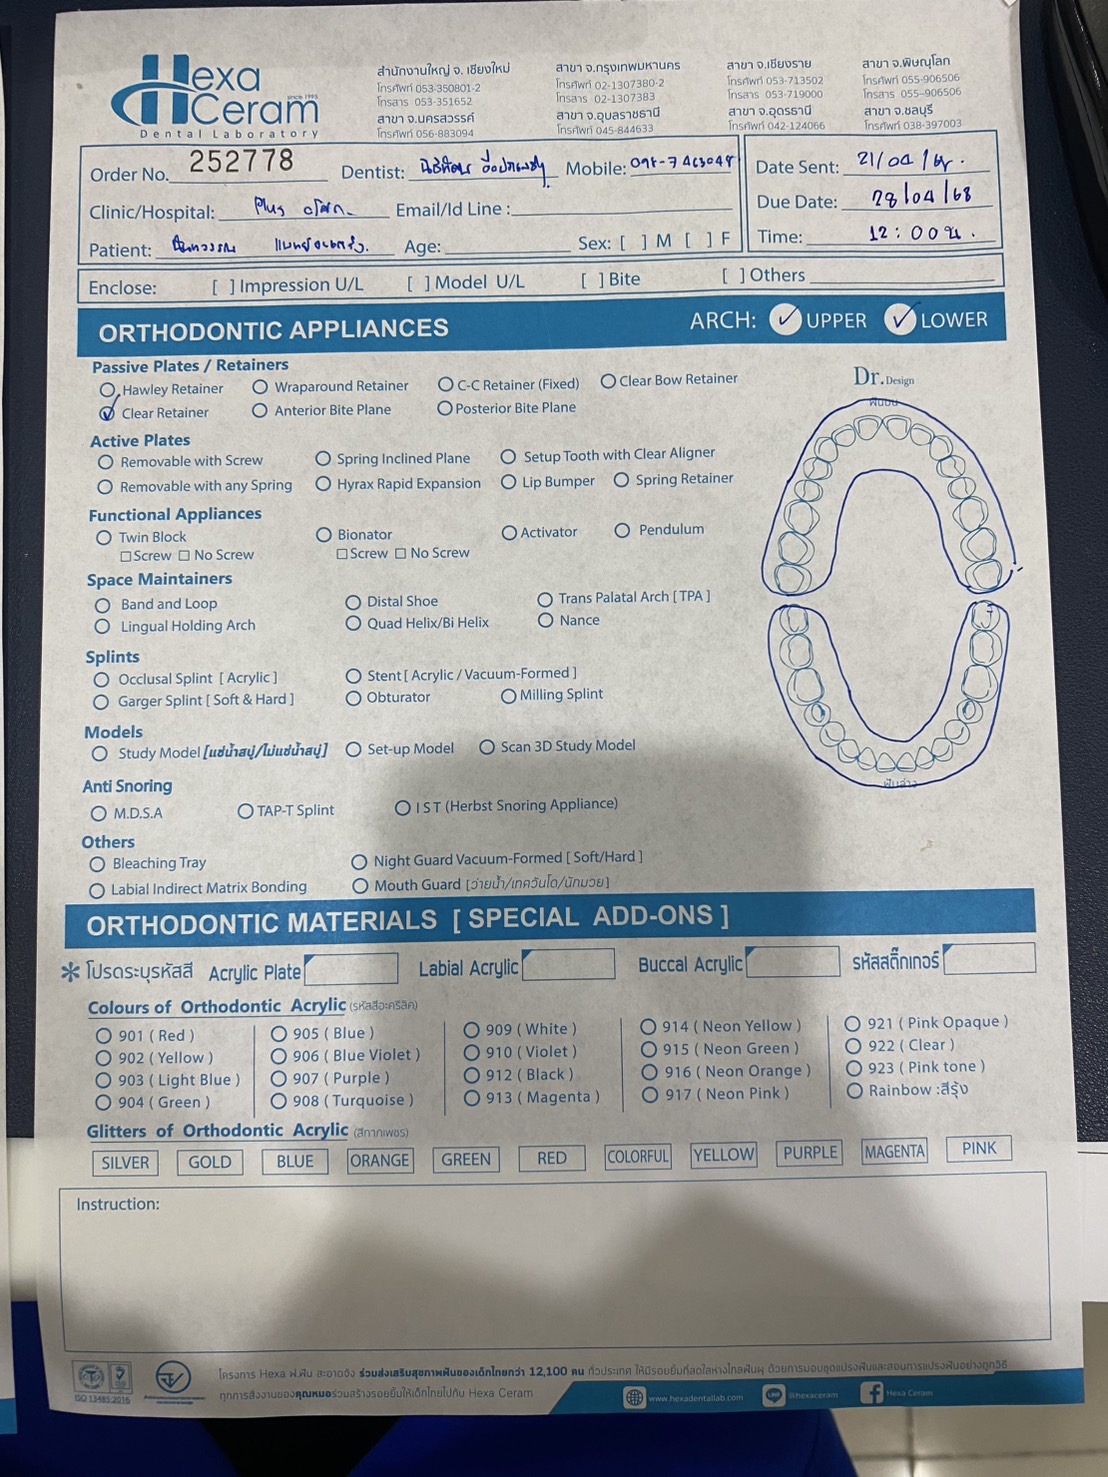 Hexa Ceram
since 1995
Dental Laboratory
สำนักงานใหญ่ จ. เชียงใหม่
โทรศัพท์ 053-350801-2
โทรสาร 053-351652
สาขา จ.นครสวรรค์
โทรศัพท์ 056-883094
สาขา จ.กรุงเทพมหานคร
โทรศัพท์ 02-1307380-2
โทรสาร 02-1307383
สาขา จ.อุบลราชธานี
โทรศัพท์ 045-844633
สาขา จ.เชียงราย
โทรศัพท์ 053-713502
โทรสาร 053-719000
สาขา จ.อุดรธานี
โทรศัพท์ 042-124066
สาขา จ.พิษณุโลก
โทรศัพท์ 055-906506
โทรสาร 055-906506
สาขา จ.ชลบุรี
โทรศัพท์ 038-397003
Order No. 252778 Dentist: Mobile:
Clinic/Hospital: Plus Email/Id Line :
Patient: Age: Sex: [ ] M [ ] F
Date Sent: 21/04/68.
Due Date: 28/04/68
Time: 12:00 น.
Enclose: [ ] Impression U/L [ ] Model U/L [ ] Bite [ ] Others
ORTHODONTIC APPLIANCES ARCH: ✓ UPPER ✓ LOWER
Passive Plates / Retainers
Hawley Retainer Wraparound Retainer C-C Retainer (Fixed) Clear Bow Retainer
✓ Clear Retainer Anterior Bite Plane Posterior Bite Plane
Dr. Design
ฟันบน
Active Plates
Removable with Screw Spring Inclined Plane Setup Tooth with Clear Aligner
Removable with any Spring Hyrax Rapid Expansion Lip Bumper Spring Retainer
Functional Appliances
Twin Block Bionator Activator Pendulum
Screw No Screw Screw No Screw
Space Maintainers
Band and Loop Distal Shoe Trans Palatal Arch [ TPA ]
Lingual Holding Arch Quad Helix/Bi Helix Nance
Splints
Occlusal Splint [ Acrylic ] Stent [ Acrylic / Vacuum-Formed ]
Garger Splint [ Soft & Hard ] Obturator Milling Splint
Models
Study Model [แช่น้ำสบู่/ไม่แช่น้ำสบู่] Set-up Model Scan 3D Study Model
ฟันล่าง
Anti Snoring
M.D.S.A TAP-T Splint I S T (Herbst Snoring Appliance)
Others
Bleaching Tray Night Guard Vacuum-Formed [ Soft/Hard ]
Labial Indirect Matrix Bonding Mouth Guard [ว่ายน้ำ/เทควันโด/นักมวย]
ORTHODONTIC MATERIALS [ SPECIAL ADD-ONS ]
* โปรดระบุรหัสสี Acrylic Plate Labial Acrylic Buccal Acrylic รหัสสติ๊กเกอร์
Colours of Orthodontic Acrylic (รหัสสีอะคริลิค)
901 ( Red ) 905 ( Blue ) 909 ( White ) 914 ( Neon Yellow ) 921 ( Pink Opaque )
902 ( Yellow ) 906 ( Blue Violet ) 910 ( Violet ) 915 ( Neon Green ) 922 ( Clear )
903 ( Light Blue ) 907 ( Purple ) 912 ( Black ) 916 ( Neon Orange ) 923 ( Pink tone )
904 ( Green ) 908 ( Turquoise ) 913 ( Magenta ) 917 ( Neon Pink ) Rainbow :สีรุ้ง
Glitters of Orthodontic Acrylic (สีกากเพชร)
SILVER GOLD BLUE ORANGE GREEN RED COLORFUL YELLOW PURPLE MAGENTA PINK
Instruction:
ISO 13485:2016
โครงการ Hexa ฟ.ฟัน สะอาดจัง ร่วมส่งเสริมสุขภาพฟันของเด็กไทยกว่า 12,100 คน ทั่วประเทศ ให้มีรอยยิ้มที่สดใสห่างไกลฟันผุ ด้วยการมอบชุดแปรงฟันและสอนการแปรงฟันอย่างถูกวิธี
ทุกการสั่งงานของคุณหมอร่วมสร้างรอยยิ้มให้เด็กไทยไปกับ Hexa Ceram
www.hexadentallab.com @hexaceram Hexa Ceram